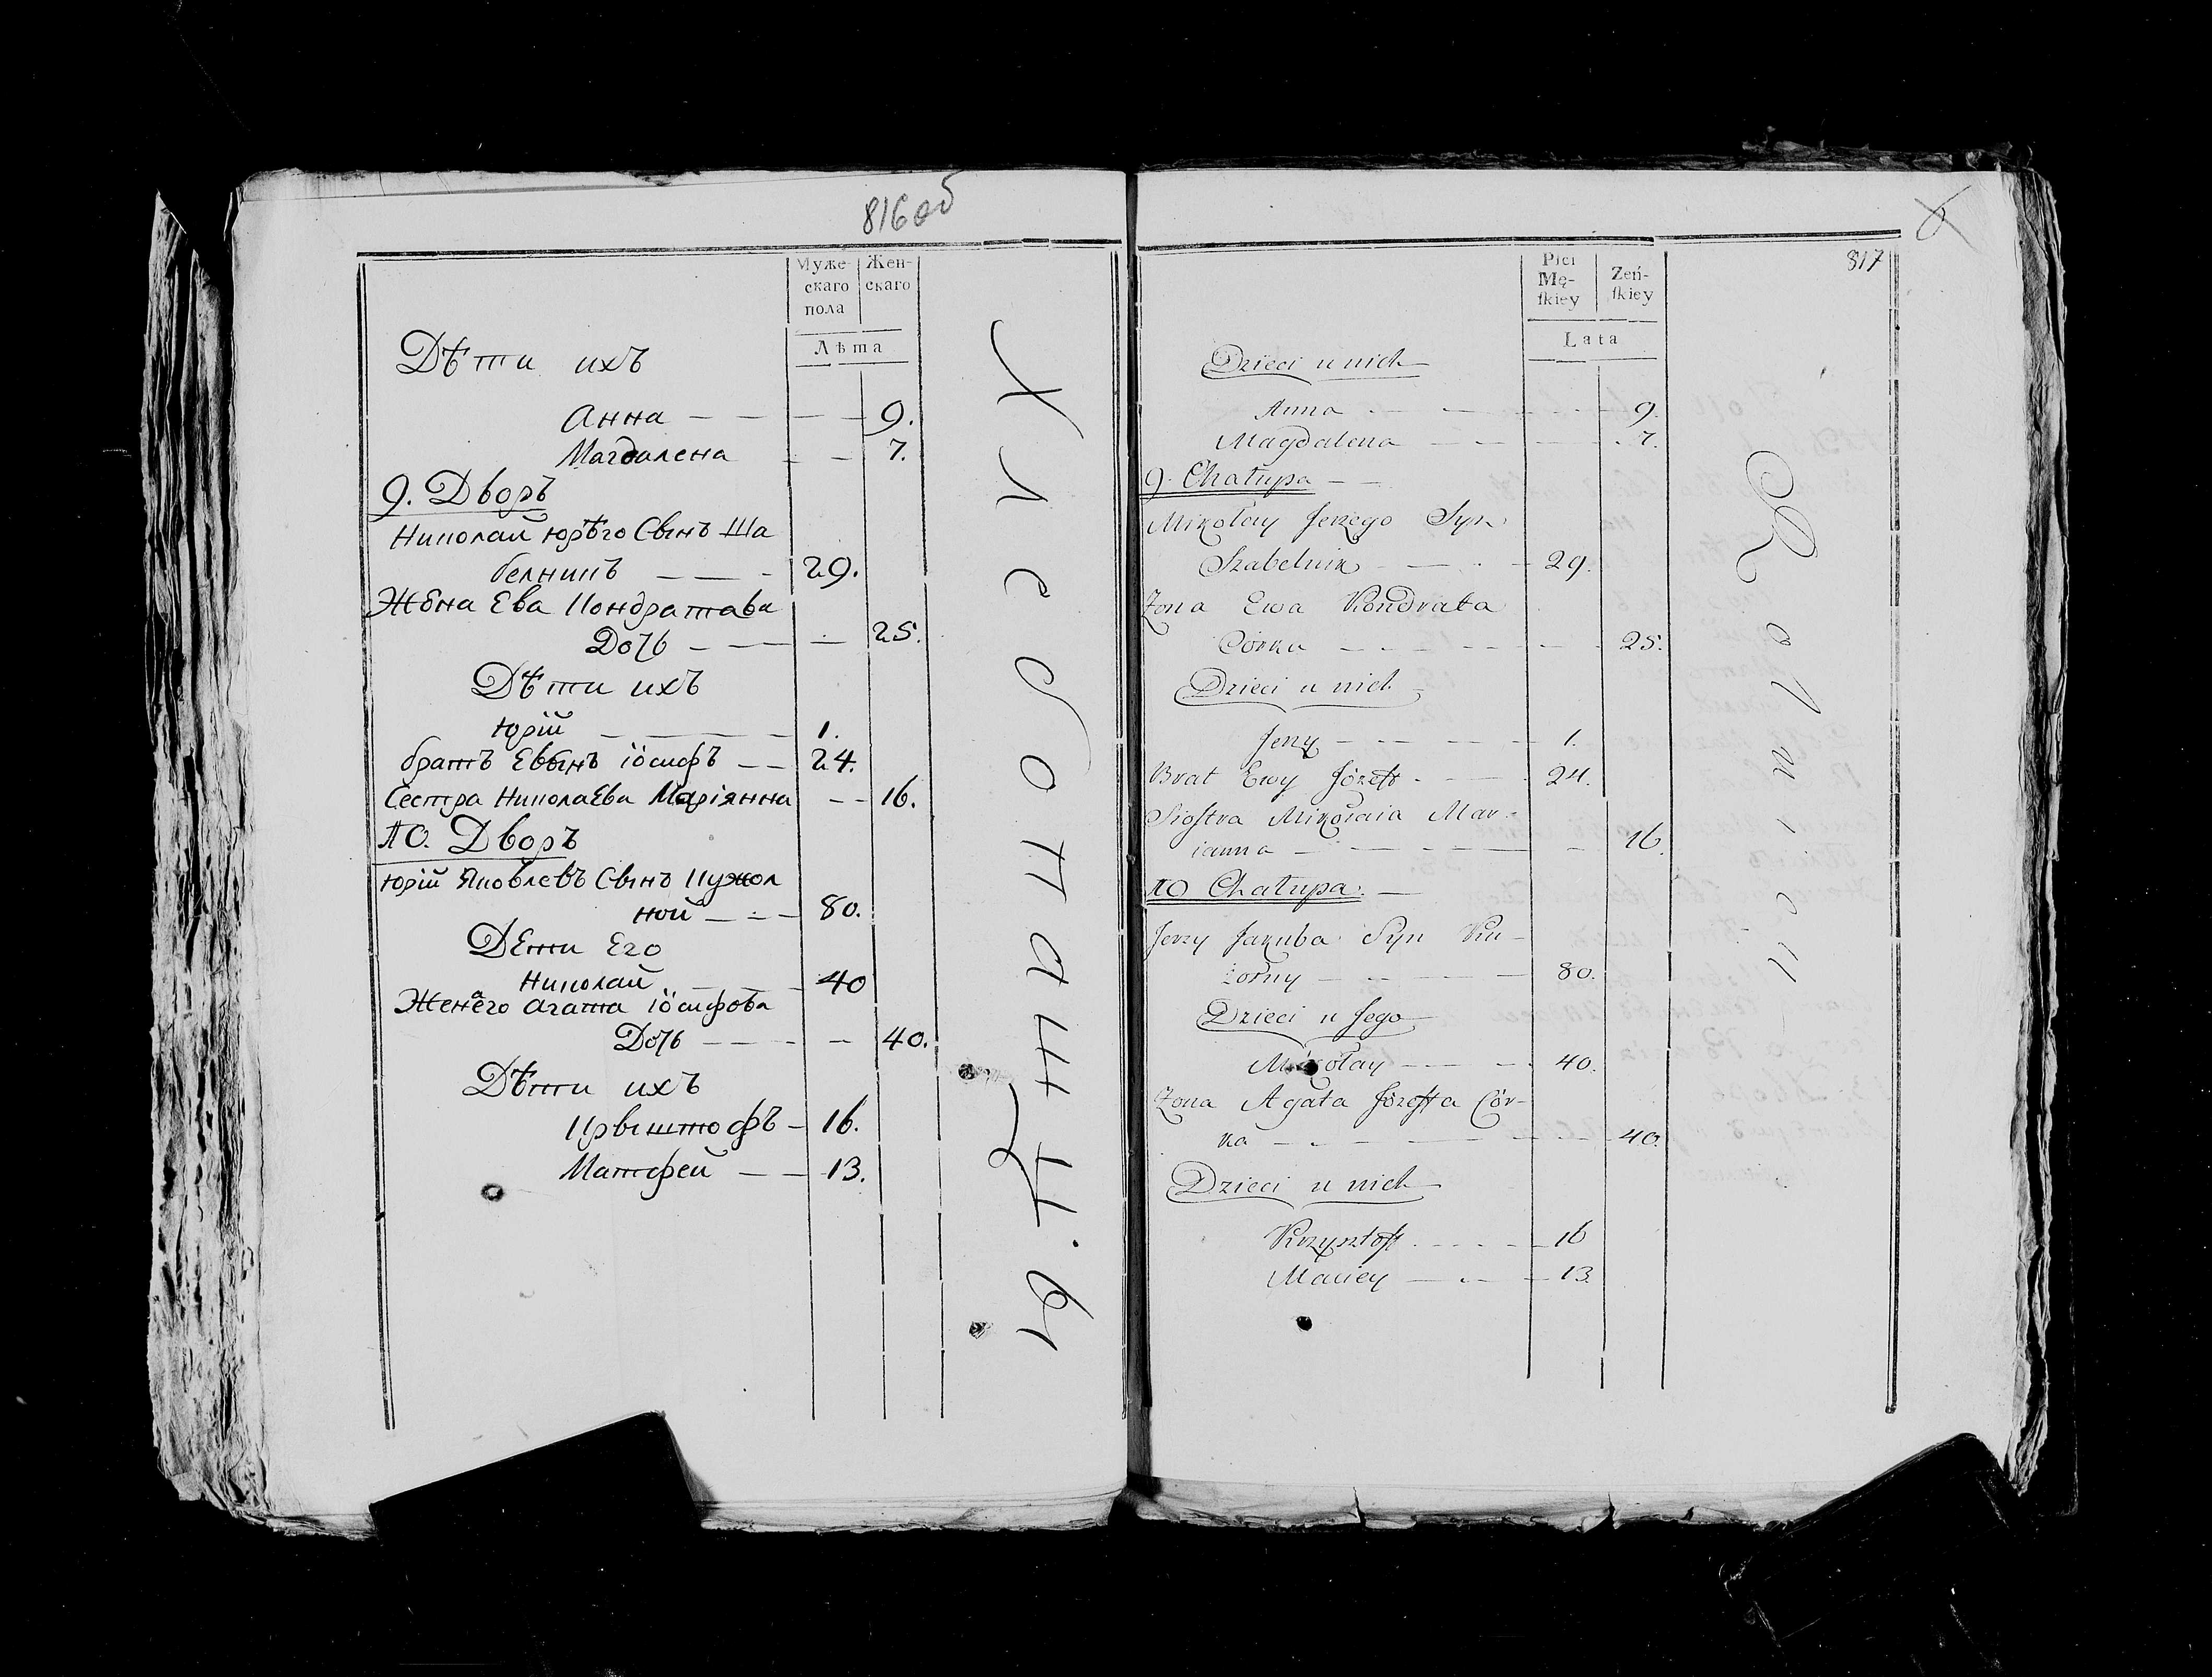 816 об
Муже-
скаго
пола
Жен-
скаго
Лѣта
Дѣти ихъ
Анна — — — — 9.
Магдалена — — 7.
9. Дворъ
Николай Юрѣго Сынъ Ша
белникъ — — - 29.
Жена Ева Кондратова
Дочь — — — 25.
Дѣти ихъ
Юрій — — — — 1.
братъ Евынъ іосифъ — — 24.
Сестра Николаева Маріянна — — 16.
10. Дворъ
Юрій Яковлевъ Сынъ Кужол
ной — — — 80.
Дети Его
Николай — — — 40
Жена его Агата іосифова
Дочь — — — — 40.
Дѣти ихъ
Крыштофъ — 16.
Матфей — — 13.
Хлебопашцы
817
Płci
Mę-
ſkiey
Zeń-
ſkiey
Lata
Dzieci u nich
Anna - — — - - 9.
Magdalena — — — - 7.
9. Chałupa — —
Mikołay Jerzego Syn
Szabelnik - — - - 29.
Zona Ewa Kondrata
Córka — — — — — 25.
Dzieci u nich
Jerzy — — — — — 1.
Brat Ewy Józeff - — — 24.
Siostra Mikołaia Mar-
ianna — — — — — 16.
10 Chałupa. —
Jerzy Jakuba Syn Ku-
żolny — — — — 80.
Dzieci u Jego
Mikołay — — - 40.
Zona Agata Józeffa Cór-
ka — — — — — — 40.
Dzieci u nich
Krzysztoff - - - — 16
Maciey — - — 13.
Rolnicy